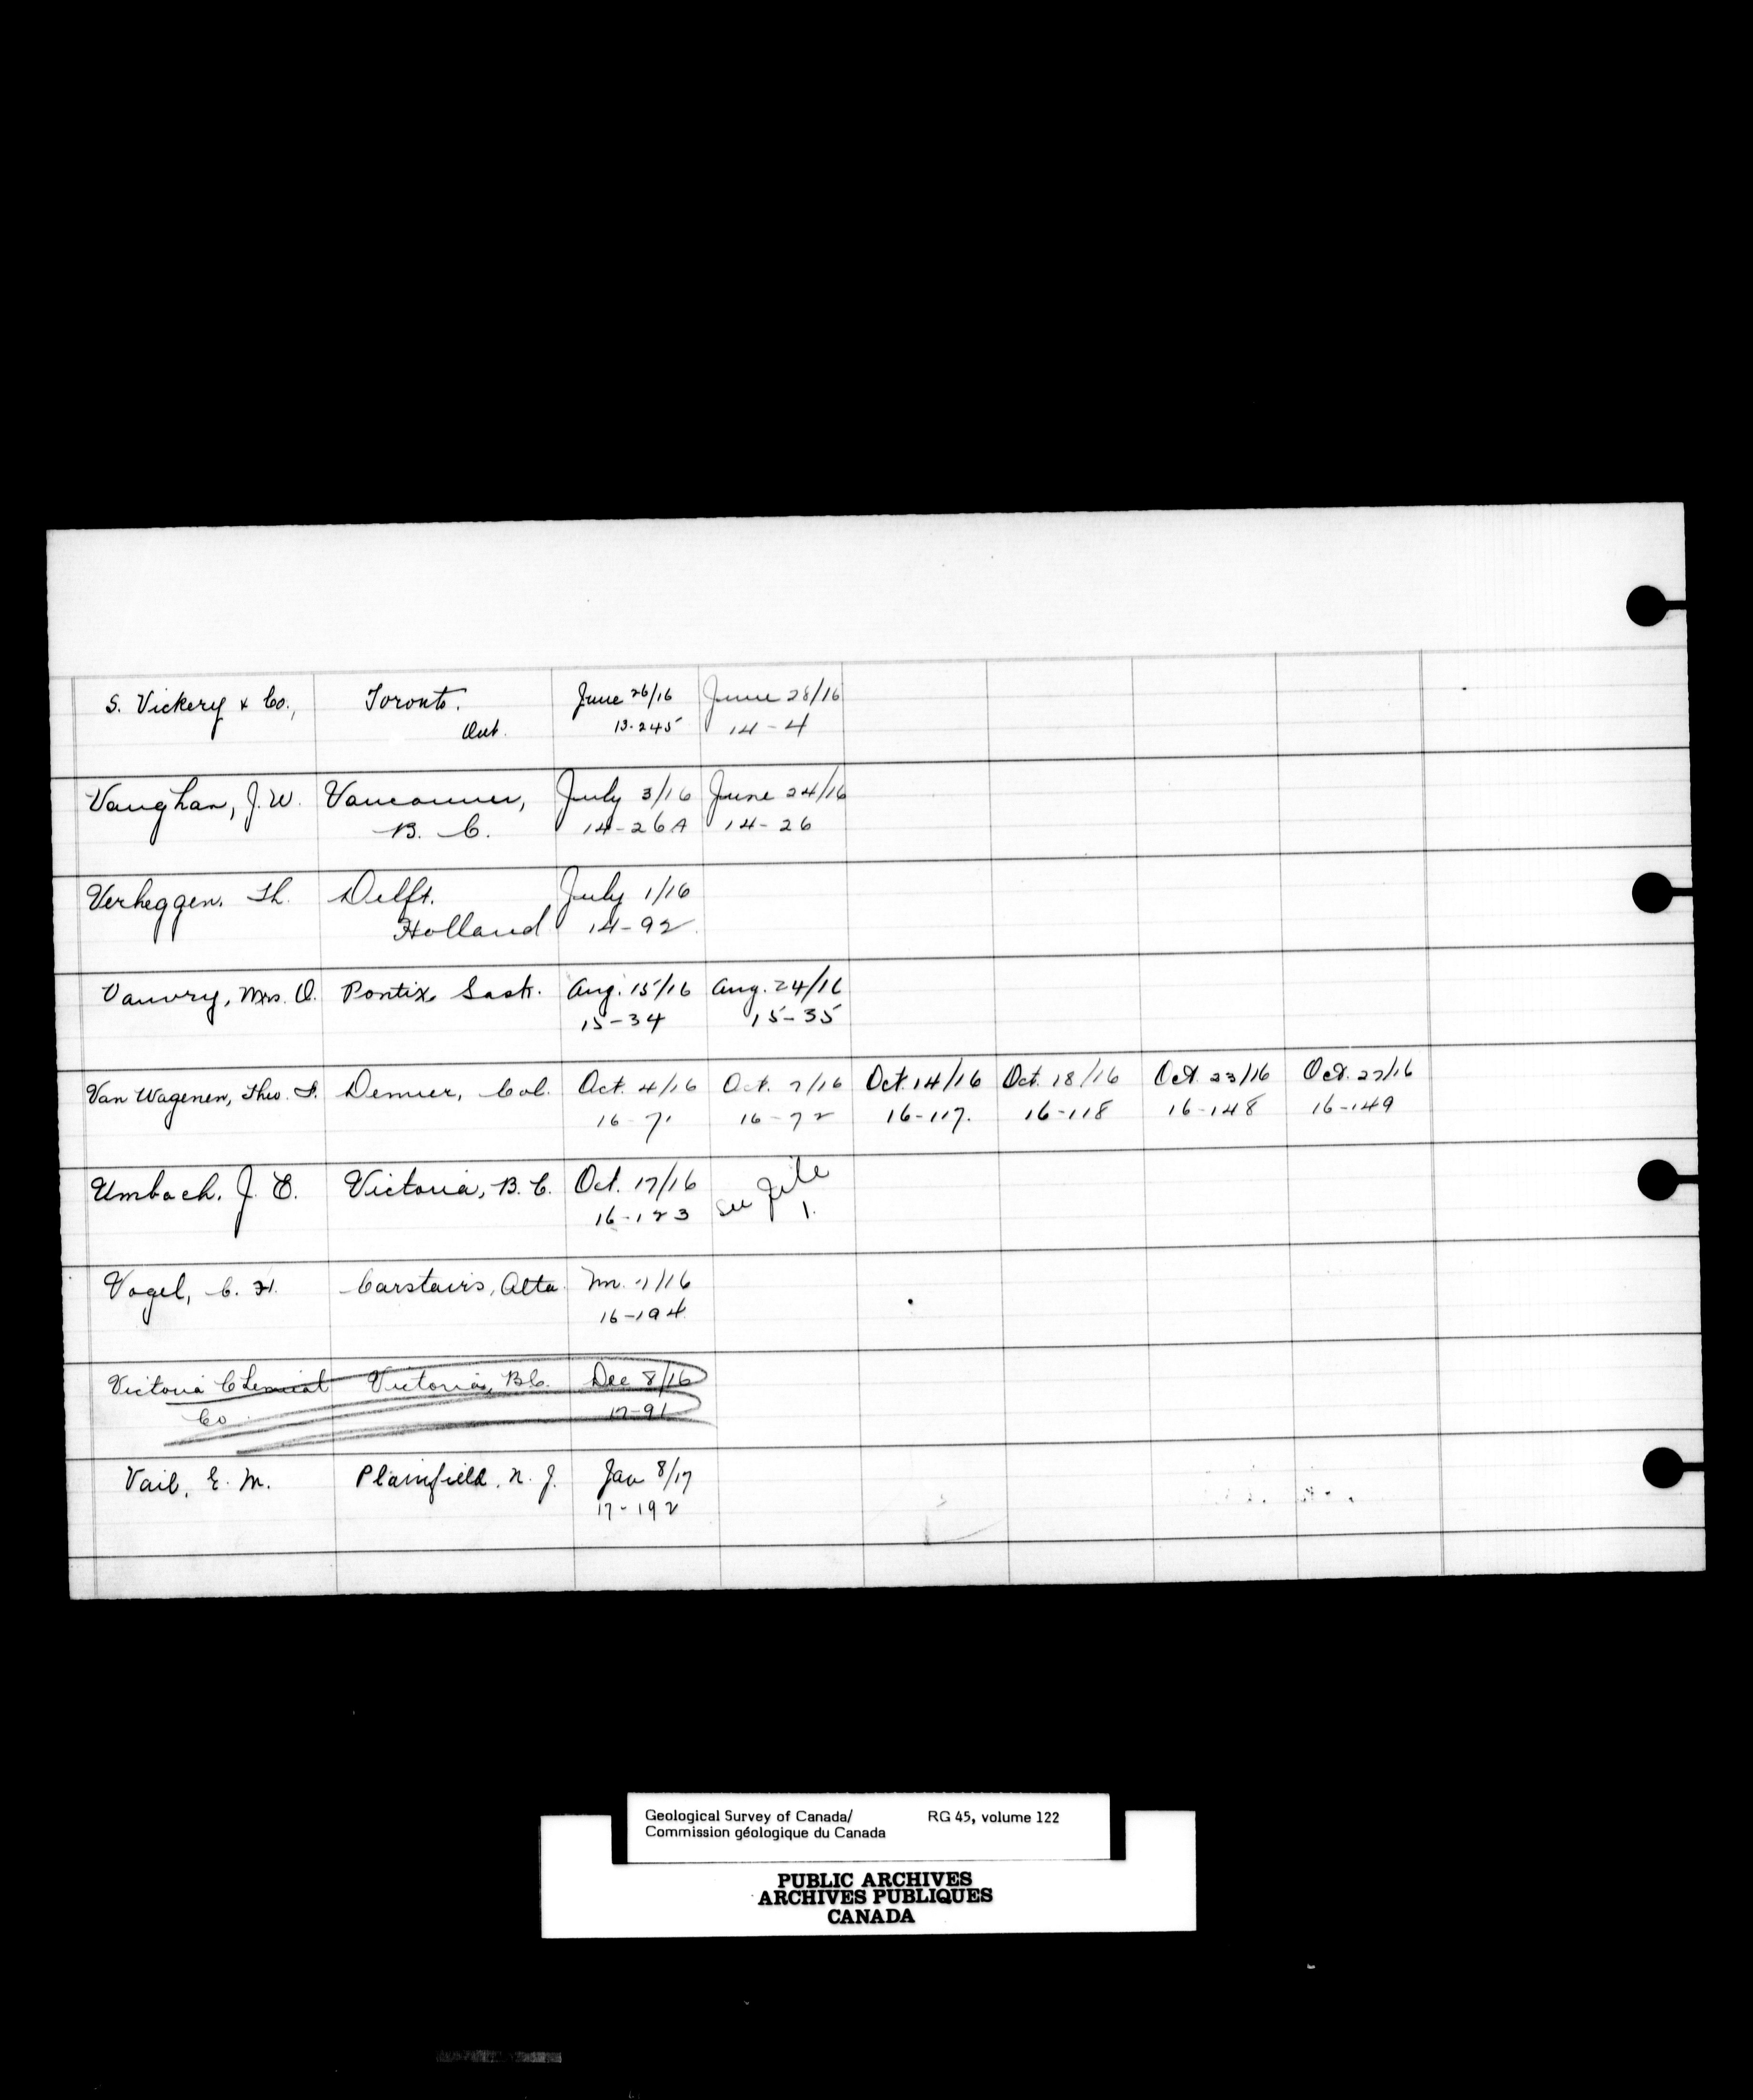 S. Vickery & Co., Toronto, June 26/16 June 28/16
Ont. 13-245 14-4
Vaughan, J. W. Vancouver, July 3/16 June 24/16
B. C. 14-26A 14-26
Verheggen, Th. Delft, July 1/16
Holland 14-92
Vauvry, Mrs. O. Pontix Sask. Aug. 15/16 Aug. 24/16
15-34 15-35
Van Wagenen, Theo. F. Denver, Col. Oct. 4/16 Oct. 7/16 Oct. 14/16 Oct. 18/16 Oct. 23/16 Oct. 27/16
16-71 16-72 16-117. 16-118 16-148 16-149
Umbach, J. E. Victoria, B. C. Oct. 17/16 See file
16-123 1.
Vogel, C. H. Carstairs, Alta. 16
16-194
Victoria Chemical Victoria, B.C. Dec 8/16
Co 17-91
Vail, E. M. Plainfield, N. J. Jan 8/17
17-192
Geological Survey of Canada/ RG 45, volume 122
Commission géologique du Canada
PUBLIC ARCHIVES
ARCHIVES PUBLIQUES
CANADA